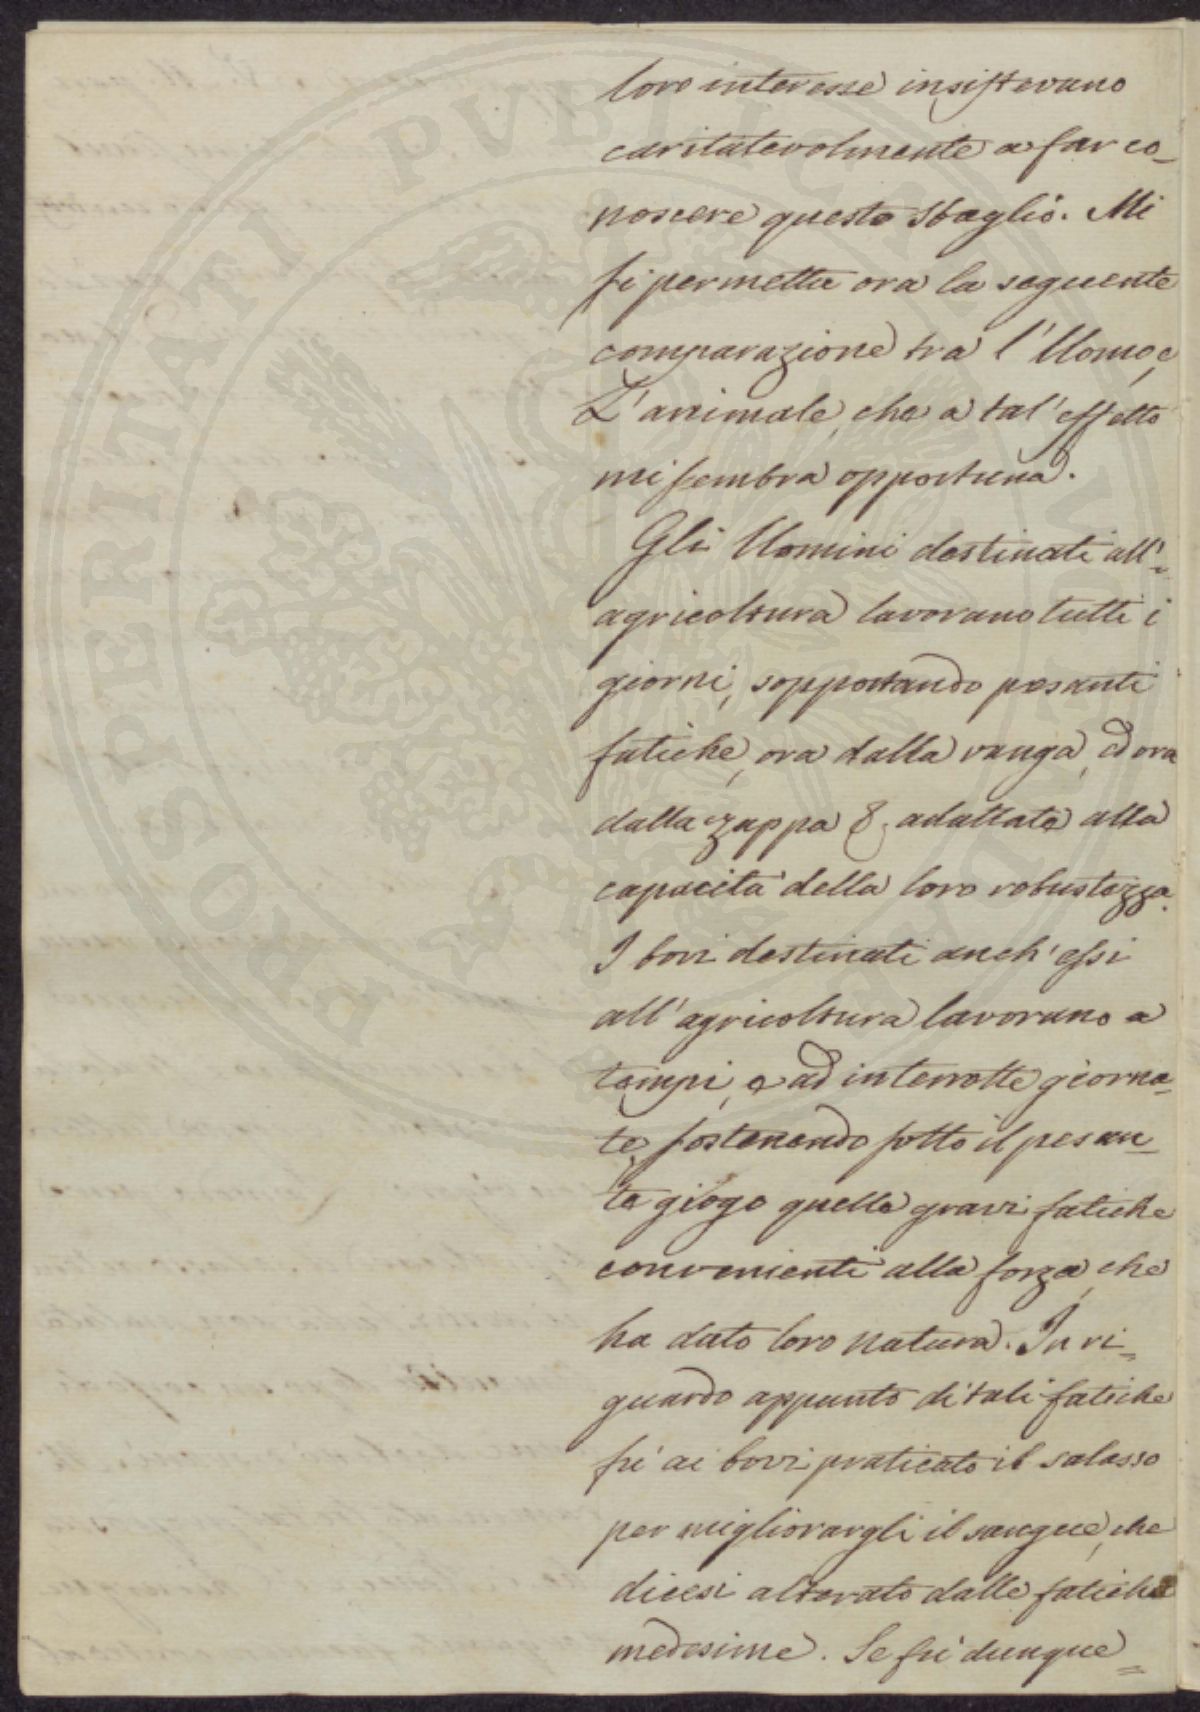 loro interesse insistevano
caritatevolmente a far co_
noscere questo sbaglio. Mi
si permetta ora la seguente
comparazione tra l'Uomo, e
L'animale, che a tal'effetto
mi sembra opportuna.
Gli Uomini destinati all'=
agricoltura lavorano tutti i
giorni, sopportando pesanti
fatiche, ora dalla vanga, ed ora
dalla zappa &. adattate alla
capacità della loro robustezza.
I bovi destinati anch'essi
all'agricoltura lavorano a
tempi, e ad interrotte giorna=
te, sostenendo sotto il pesan_
te giogo quelle gravi fatiche
convenienti alla forza, che
ha dato loro natura. In ri=
guardo appunto di tali fatiche
fù ai bovi praticato il salasso
per migliorargli il sangue, che
dicesi alterato dalle fatiche
medesime. Se fù dunque=
PROSPERITATI PUBLICAE